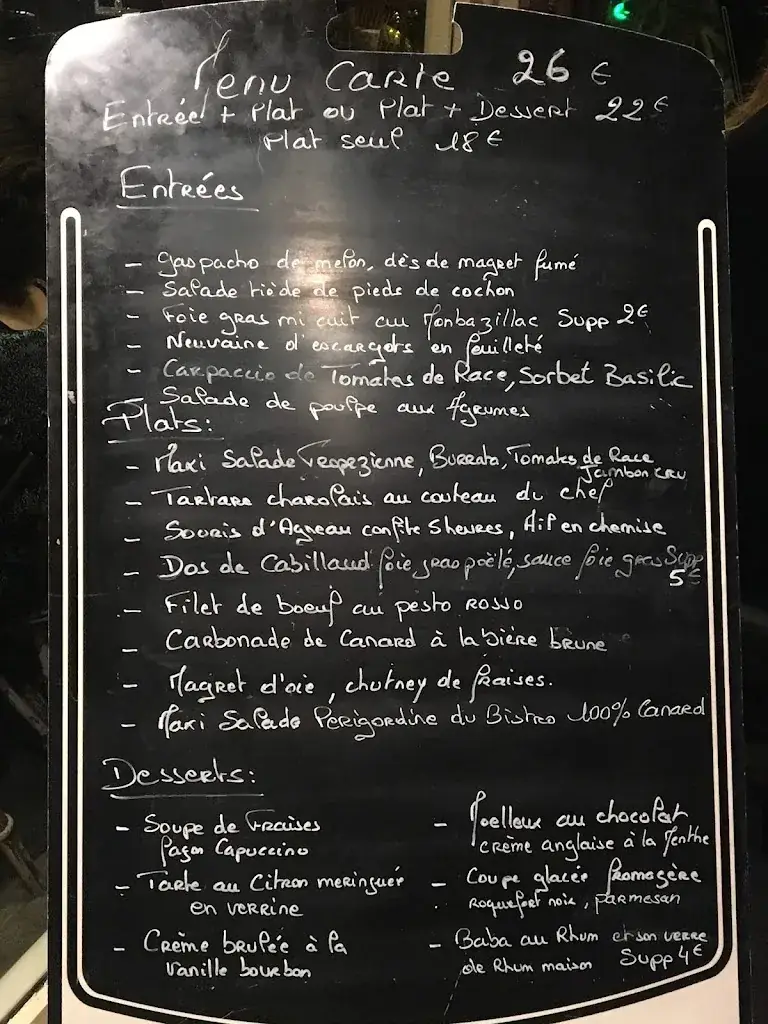 Menu Carte 26 €
Entrée + Plat ou Plat + Dessert 22 €
Plat seul 18 €
Entrées
- Gaspacho de melon, dès de magret fumé
- Salade tiède de pieds de cochon
- Foie gras mi cuit au Monbazillac Supp 2€
- Neuvaine d'escargots en feuilleté
- Carpaccio de Tomates de Race, Sorbet Basilic
- Salade de poulpe aux Agrumes
Plats:
- Maxi Salade Tropezienne, Burrata, Tomates de Race
Jambon cru
- Tartare charolais au couteau du chef
- Souris d'Agneau confite 5 heures, Ail en chemise
- Dos de Cabillaud foie gras poêlé, sauce foie gras Supp
5€
- Filet de boeuf au pesto rosso
- Carbonade de Canard à la bière brune
- Magret d'oie, chutney de fraises.
- Maxi Salade Périgordine du Bistro 100% Canard
Desserts:
- Soupe de Fraises
façon Capuccino
- Tarte au Citron meringuée
en verrine
- Crème brulée à la
vanille bourbon
- Moelleux au chocolat
crème anglaise à la Menthe
- Coupe glacée fromagère
roquefort noix, parmesan
- Baba au Rhum et son verre
de Rhum maison Supp 4€